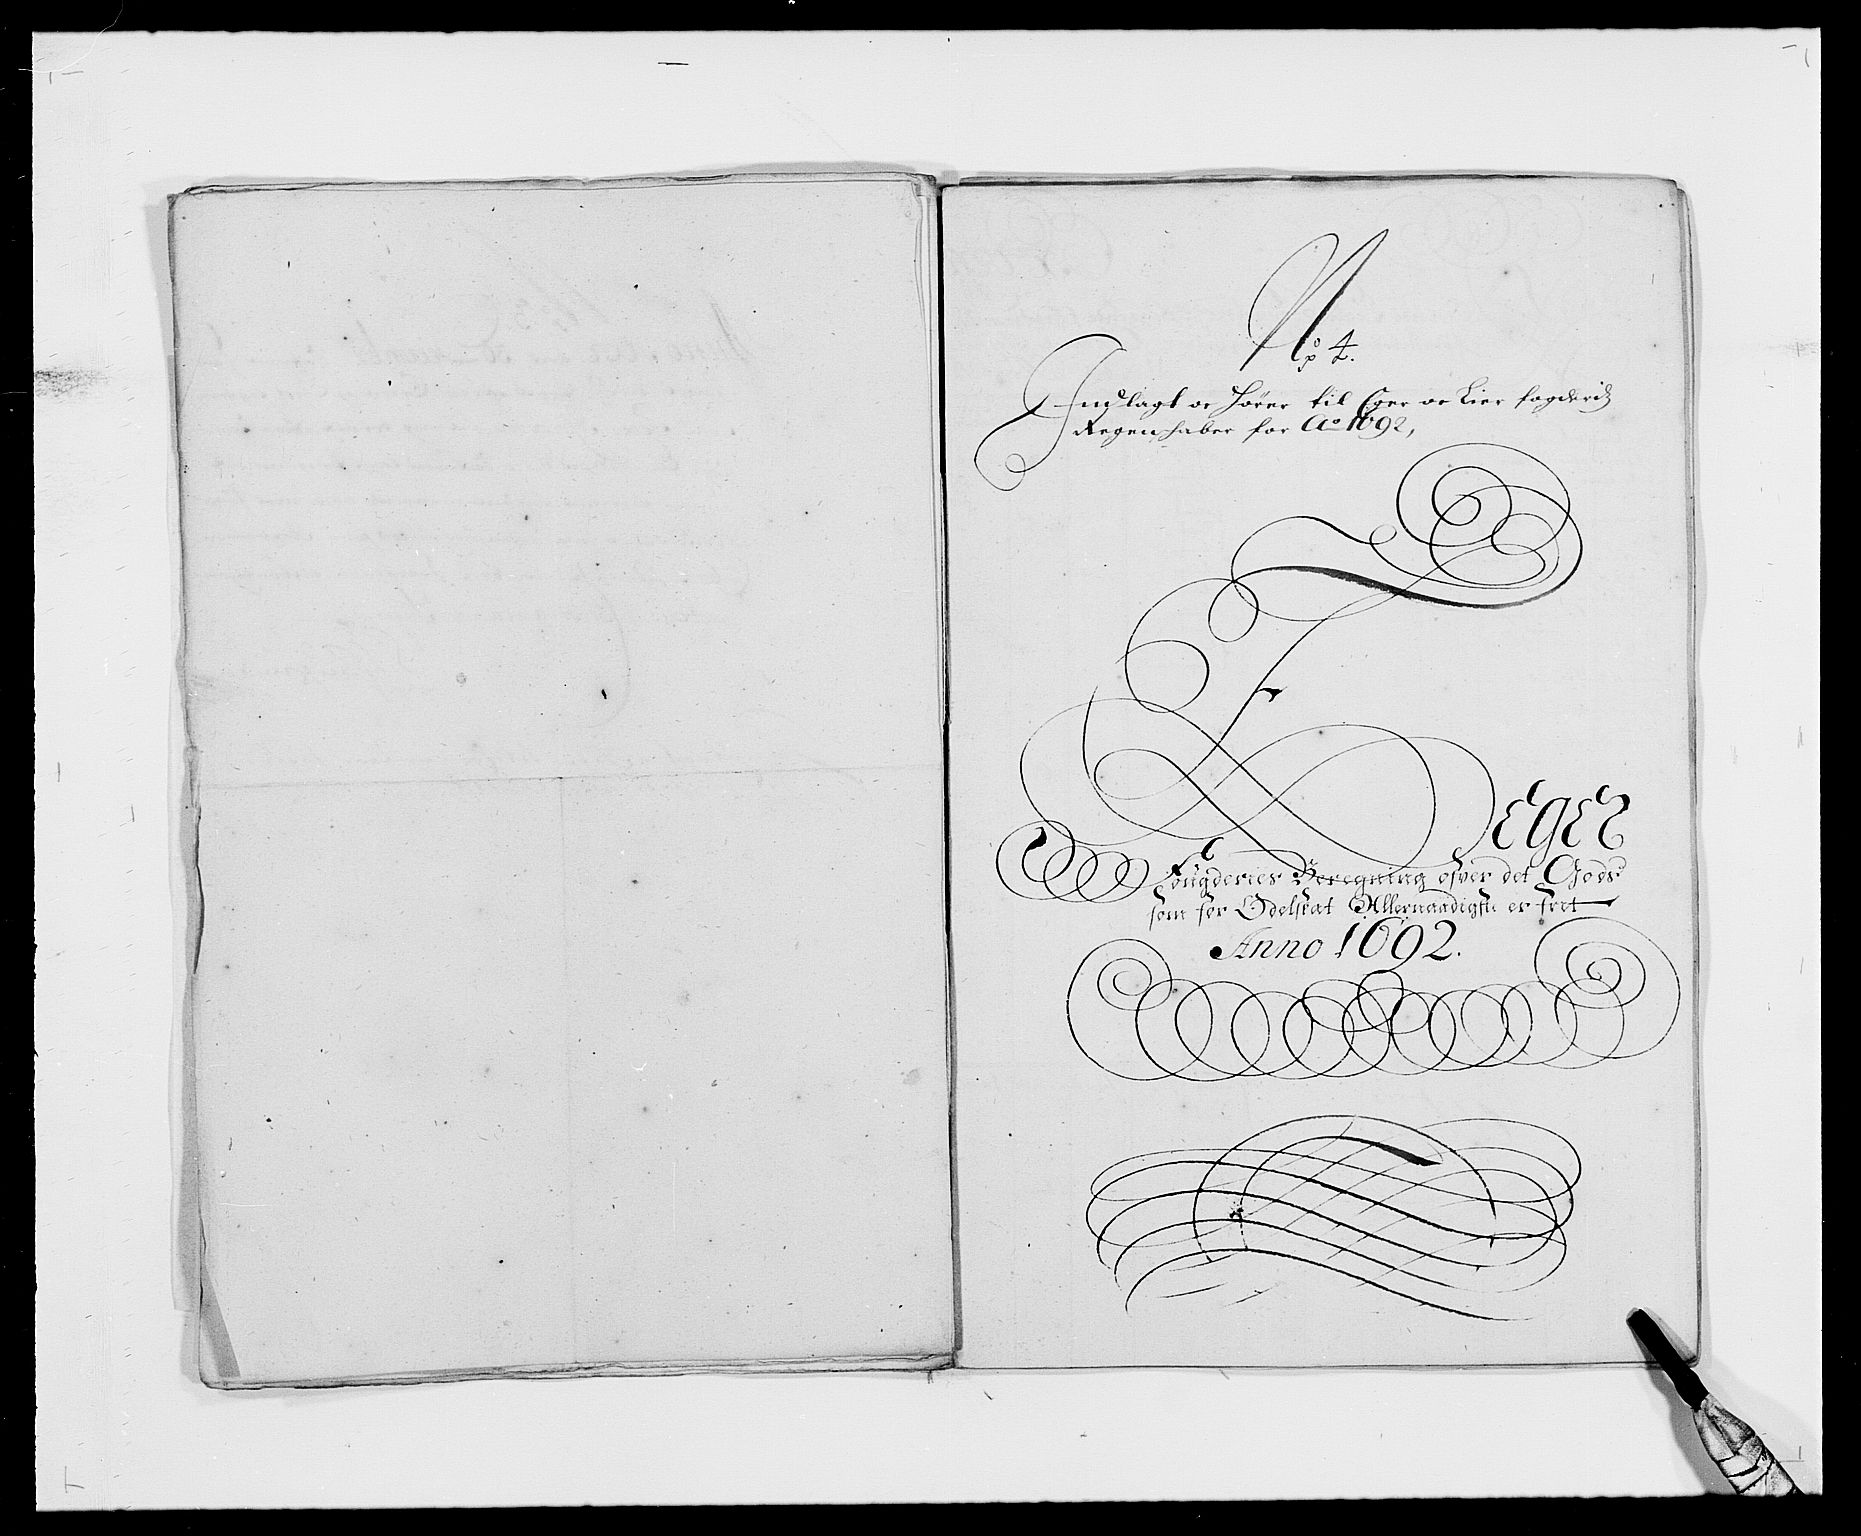 No 4.
Indlagt oc hører til Eger oc Lier fogderis
Regenschaber for Ao 1692,
Eeger
Fougderies Beregning ofver det Gods
som for Odelskat Allernaadigst er friit
Anno 1692.